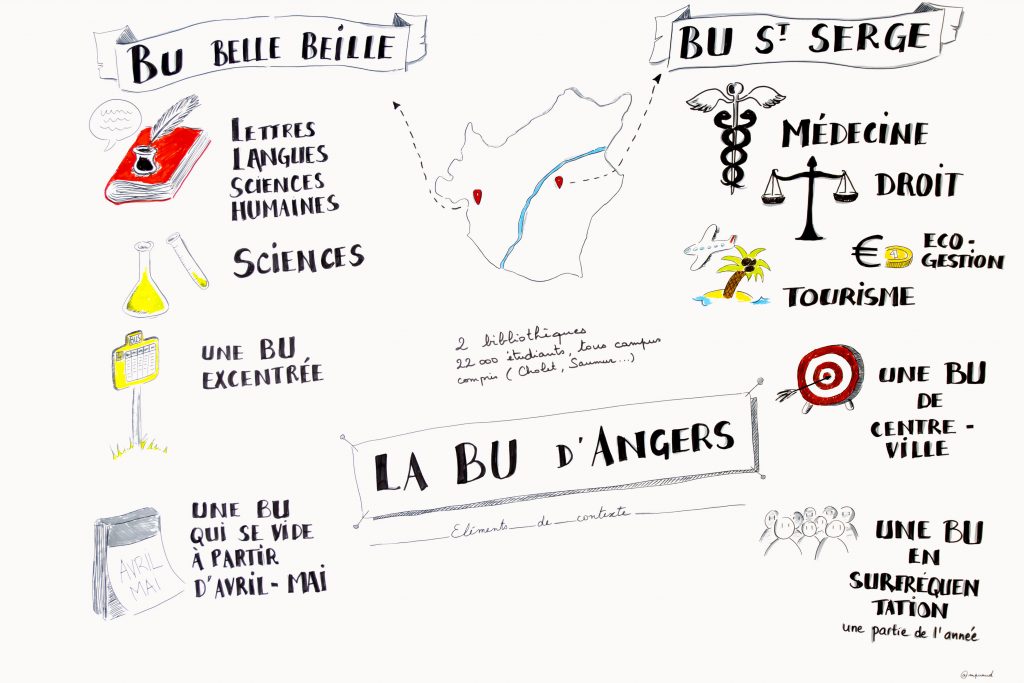 BU BELLE BEILLE
LETTRES
LANGUES
SCIENCES
HUMAINES
SCIENCES
UNE BU
EXCENTRÉE
BUS
UNE BU
QUI SE VIDE
À PARTIR
D'AVRIL - MAI
AVRIL
MAI
2 bibliothèques
22 000 étudiants, tous campus
compris (Cholet, Saumur...)
LA BU D'ANGERS
Eléments de contexte
BU ST SERGE
MÉDECINE
DROIT
€
ECO-
GESTION
TOURISME
UNE BU
DE
CENTRE -
VILLE
UNE BU
EN
SURFRÉQUEN
TATION
une partie de l'année